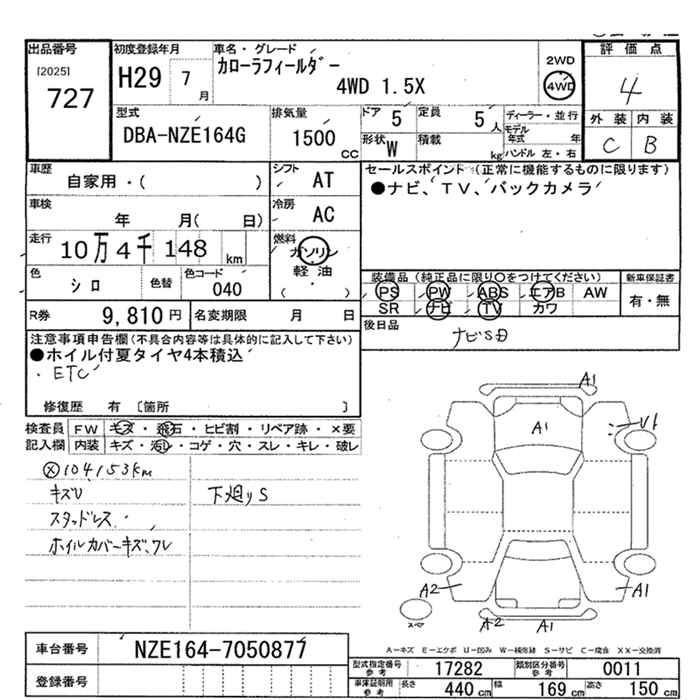 出品番号
[2025]
727
初度登録年月
H29 7 月
車名・グレード
カローラフィールダー
4WD 1.5X
2WD
4WD
評価点
4
外装 内装
C B
型式
DBA-NZE164G
排気量
1500 cc
ドア 5
定員 5 人
形状 W
積載 kg
ディーラー・並行
モデル年式 年
ハンドル 左・右
車歴
自家用・( )
シフト AT
車検
年 月( 日)
冷房 AC
走行
10万4千148 km
燃料
ガソリン
軽油
( ・ )
色
シロ
色替
色コード
040
R券 9,810円
名変期限 月 日
セールスポイント (正常に機能するものに限ります)
●ナビ、TV、バックカメラ
装備品 (純正品に限り〇をつけてください)
PS PW ABS エアB AW
SR ナビ TV カワ
新車保証書
有・無
後日品
ナビSD
注意事項申告欄(不具合内容等は具体的に記入して下さい)
●ホイル付夏タイヤ4本積込
・ETC
修復歴 有 〔箇所 〕
検査員記入欄
FW キズ・飛石・ヒビ割・リペア跡・×要
内装 キズ・汚レ・コゲ・穴・スレ・キレ・破レ
ⓧ104153km
キズU
スタッドレス
ホイルカバーキズ、ワレ
下廻りS
A1
A1
U1
A2
A1
A2
A1
スペア
A-キズ E-エクボ U-凹み W-補修跡 S-サビ C-腐食 XX-交換済
車台番号
NZE164-7050877
登録番号
型式指定番号 参考 17282
類別区分番号 参考 0011
車庫証明用 参考
長さ 440 cm
幅 169 cm
高さ 150 cm